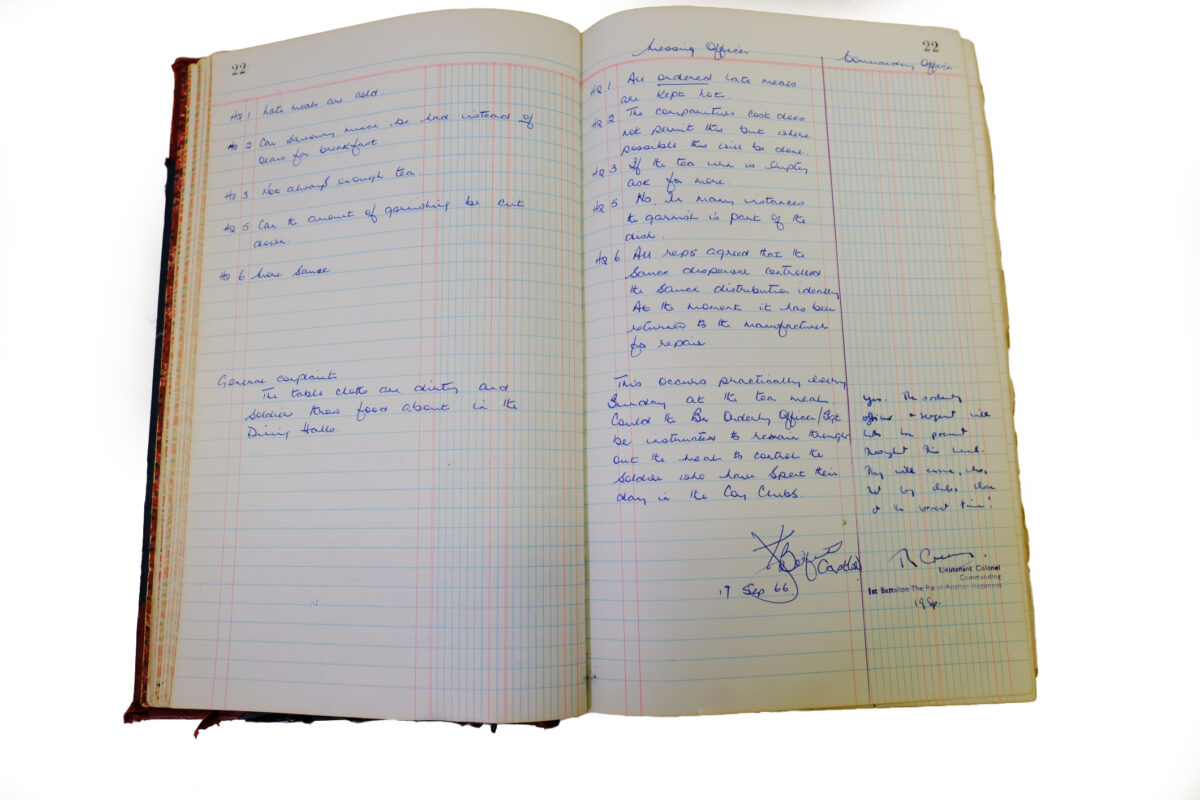 22
HQ 1 Late meals are cold.
HQ 2 Can Savoury mince be had instead of
beans for breakfast
HQ 3 Not always enough tea.
HQ 5 Can the amount of garnishing be cut
down.
HQ 6 More Sauce.
General complaints
The table cloths are dirty and
Soldiers throw food about in the
Dining Halls.
22
Messing Officer
Commanding Officer
HQ 1 All ordered late meals
are kept hot.
HQ 2 The comparative cost does
not permit this but where
possible this will be done.
HQ 3 If the tea urn is empty
ask for more.
HQ 5 No. In many instances
the garnish is part of the
dish.
HQ 6 All reps agreed that the
Sauce dispenser controlled
the Sauce distribution ideally
At the moment it has been
returned to the manufacturer
for repair
This occurs practically every
Sunday at the tea meal.
Could the Bn Orderly Officer/Sgt
be instructed to remain through
out the meal to control the
Soldiers who have spent their
day in the Coy Clubs.
17 Sep 66.
Yes. The orderly
officer & sergeant will
be present
throughout this meal.
They will ensure, also,
that
at the correct time!
Lieutenant Colonel
Commanding
1st Battalion The Royal Anglian Regiment
19 Sep.